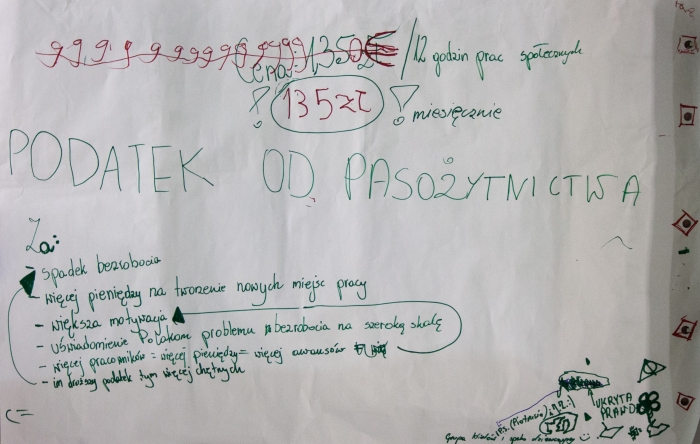 Cena: 1350 / 12 godzin prac społecznych
! 135 zł ! miesięcznie
PODATEK OD PASOŻYTNICTWA
Za:
- spadek bezrobocia
- więcej pieniędzy na tworzenie nowych miejsc pracy
- większa motywacja
- uświadomienie Polakom problemu bezrobocia na szeroką skalę
- więcej pracowników = więcej pieniędzy = więcej awansów
- im droższy podatek tym więcej chętnych
UKRYTA
PRAWDA